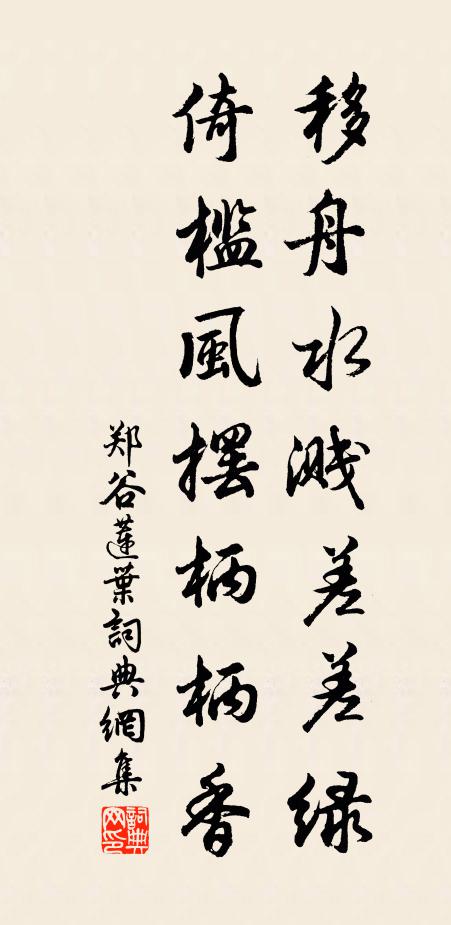 移舟水溅差差绿
倚檻風擺柄柄香
郑谷蓮葉詞典網集
詞典网印